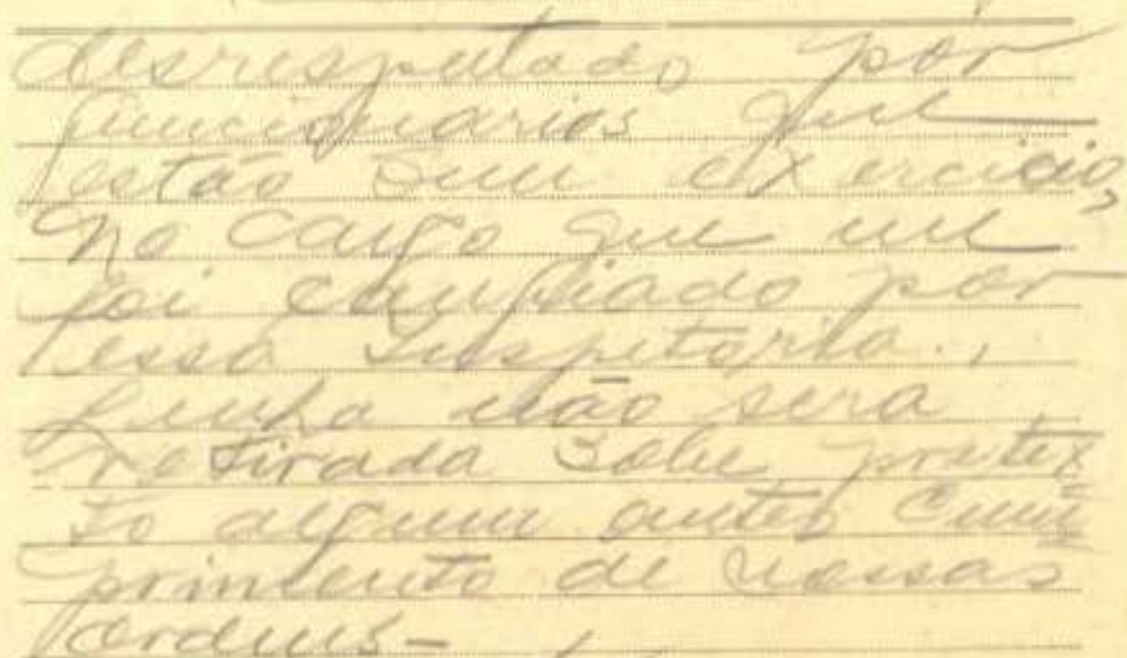 desrespeitado por
funcionarios que
estão sem exercicio,
no cargo que me
foi confiado por
essa Inspetoria.,
Lenha não sera
retirada sobe pretex
to algum antes cum
primento de nossas
ordens-